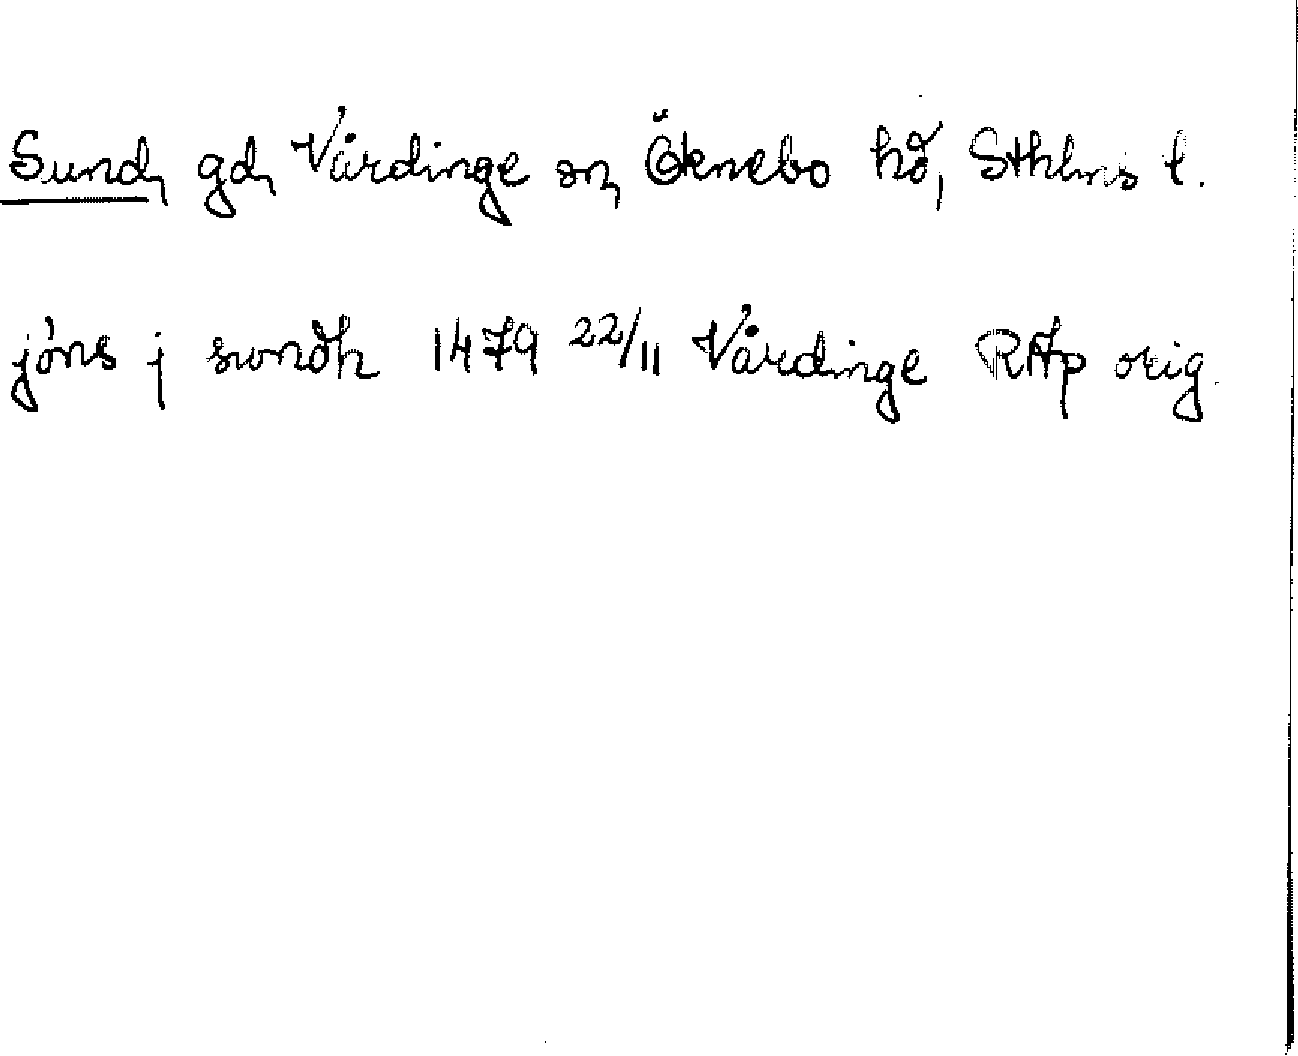 Sund, gd, Vårdinge sn, Öknebo hd, Sthlms l.
jöns j swndh 1479 22/11 Vårdinge RAp orig.